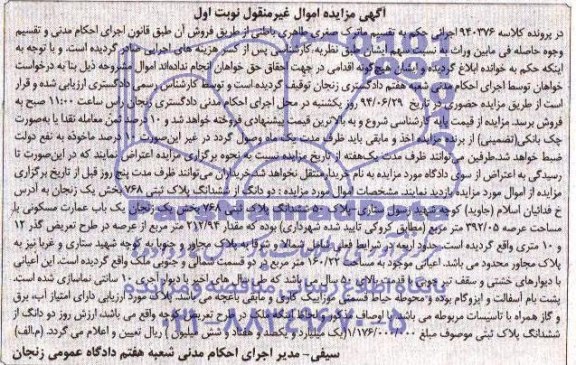 آگهی مزایده اموال غیرمنقول نوبت اول
در پرونده کلاسه ۹۴۰۳۷۶ اجرائی حکم به تقسیم ماترک صغری طاهری باطنی از طریق فروش آن طبق قانون اجرای احکام مدنی و تقسیم
وجوه حاصله فی مابین وراث به نسبت سهم ایشان طبق نظریه کارشناس پس از کسر هزینه های اجرایی صادر گردیده است، و با توجه به
اینکه حکم به خوانده ابلاغ گردیده و ایشان هیچ گونه اقدامی در جهت احقاق حق خواهان انجام نداده اند اموال مشروحه ذیل بنا به درخواست
خواهان توسط اجرای احکام مدنی شعبه هفتم دادگستری زنجان توقیف گردیده است و توسط کارشناس رسمی دادگستری ارزیابی شده و قرار
است از طریق مزایده حضوری در تاریخ ۹۴/۰۶/۲۹ روز یکشنبه در محل اجرای احکام مدنی دادگستری زنجان راس ساعت ۱۱:۰۰ صبح به
فروش برسد. مزایده از قیمت پایه کارشناسی شروع و به بالاترین قیمت پیشنهادی فروخته خواهد شد و ۱۰ درصد ثمن معامله نقدا یا به صورت
چک بانکی(تضمینی) از برنده مزایده اخذ و مابقی باید ظرف مدت یک ماه وصول گردد در غیر این صورت ۱۰ درصد ماخوذه به نفع دولت
ضبط خواهد شد.طرفین می توانند ظرف مدت یک هفته از تاریخ مزایده نسبت به نحوه برگزاری مزایده اعتراض نمایند که در این صورت تا
رسیدگی به اعتراض از سوی دادگاه مورد مزایده به نام خریدار منتقل نخواهد شد.خریداران می توانند ظرف مدت پنج روز قبل از تاریخ برگزاری
مزایده از اموال مورد مزایده بازدید نمایند. مشخصات اموال مورد مزایده : دو دانگ از ششدانگ پلاک ثبتی ۷۶۸ بخش یک زنجان به آدرس
خ فدائیان اسلام (جاوید) کوچه شهید رسول ستاری-پلاک ۵۰ ششدانگ پلاک ثبتی ۷۶۸ بخش یک زنجان یک باب عمارت مسکونی با
مساحت عرصه ۳۹۲/۰۵ متر مربع (مطابق کروکی تایید شده شهرداری) بوده که مقدار ۲۱۲/۹۴ متر مربع از عرصه در طرح تعریض گذر ۱۲
و ۱۰ متری واقع گردیده است. حدود اربعه در شرایط فعلی شامل شمالا و شرقا به پلاک مجاور و جنوبا به کوچه شهید ستاری و غربا نیز به
پلاک مجاور محدود می باشد. اعیانی موجود به مساحت ۱۶۰/۲۲ متر مربع در دو قسمت شمالی و جنوبی ملک واقع گردیده است. این اعیانی
با دیوارهای خشتی و سقف تیر چوبی با قدمت بالای ۵۰ سال می باشد که طی سال های اخیر با دیوار آجری ۱۰ سانتی نماسازی شده است.
پشت بام آسفالت و ایزوگام بوده و محوطه حیاط قسمتی موزاییک کاری و مابقی باغچه می باشد. پلاک مورد ارزیابی دارای امتیاز آب، برق
و گاز همراه با تاسیسات مربوطه می باشد. با اوصاف مذکور و لحاظ اینکه ملک در طرح تعریض کوچه واقع می باشد، ارزش روز دو دانگ از
ششدانگ پلاک ثبتی موصوف مبلغ ۱/۱۷۶/۰۰۰/۰۰۰ (یک میلیارد و یکصد و هفتاد و شش میلیون ) ریال تعیین و اعلام می گردد. (م.الف)
سیفی- مدیر اجرای احکام مدنی شعبه هفتم دادگاه عمومی زنجان
ParsNamadData
۰۲۱-۸۸۳۴۹۶۷۰-۵